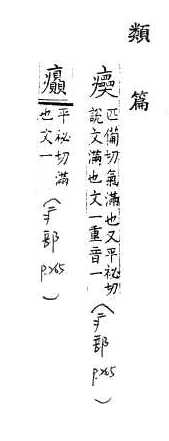 類篇
匹備切氣滿也又平祕切
說文滿也文一重音一(疒部 p.265)
平祕切滿
也文一(疒部 p.265)